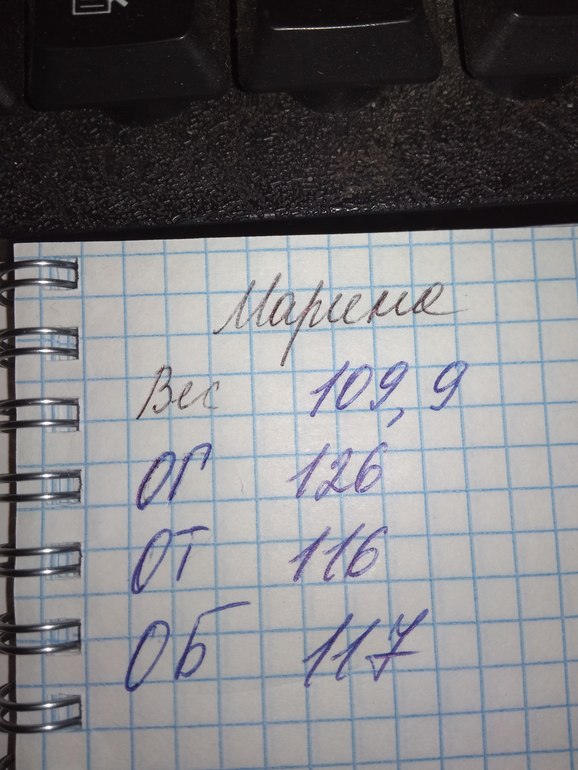 Марина
Вес 109,9
ОГ 126
ОТ 116
ОБ 117